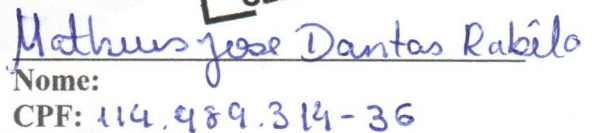 Matheus Jose Dantas Rabêlo
Nome:
CPF: 114.989.314-36